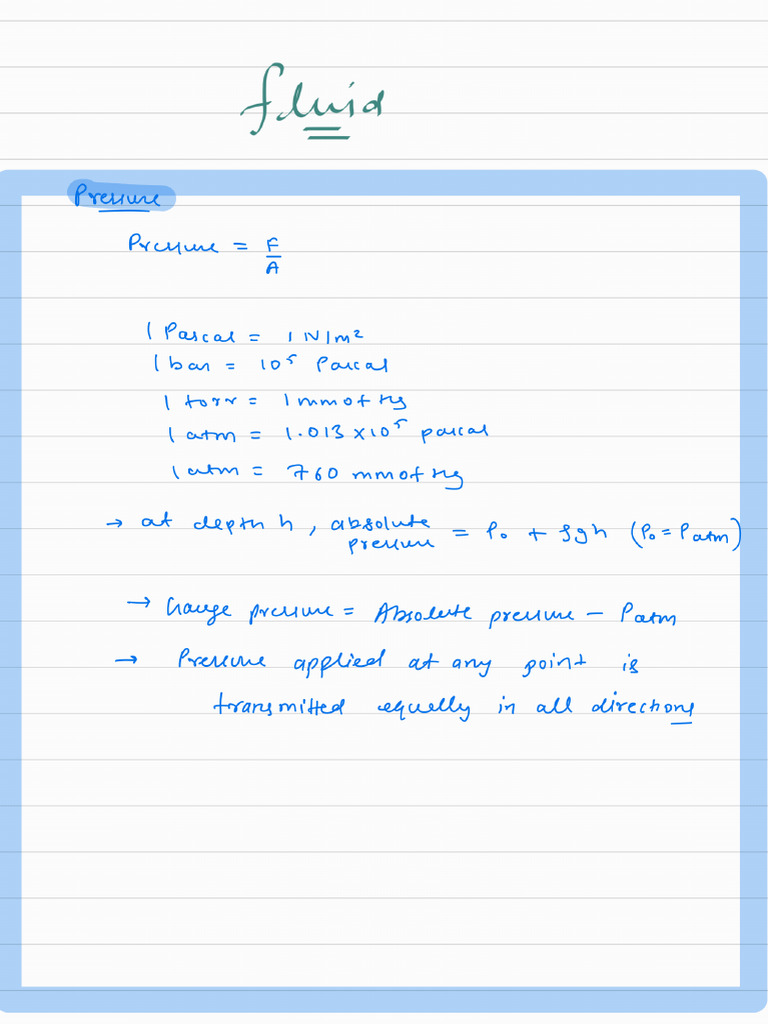 fluid
Pressure
Pressure = F/A
1 Pascal = 1 N/m²
1 bar = 10⁵ Pascal
1 torr = 1 mm of Hg
1 atm = 1.013 × 10⁵ pascal
1 atm = 760 mm of Hg
→ at depth h, absolute pressure = P₀ + ρgh (P₀ = Patm)
→ Gauge pressure = Absolute pressure − Patm
→ Pressure applied at any point is
transmitted equally in all directions